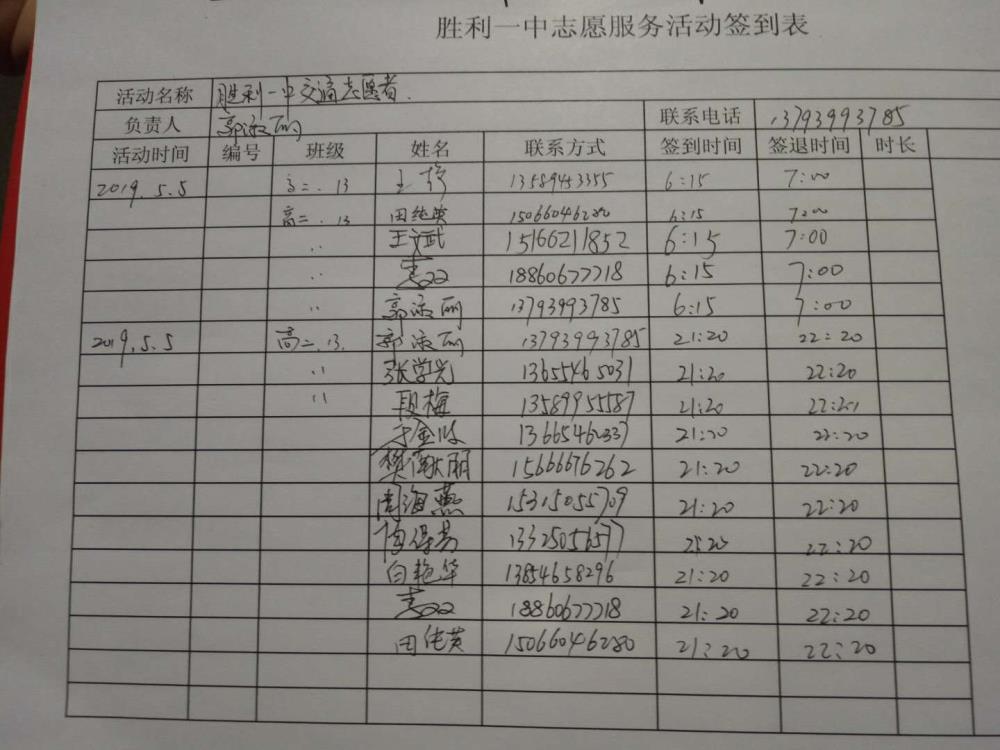 胜利一中志愿服务活动签到表
活动名称 胜利一中交通志愿者.
负责人 郭淑丽 联系电话 13793993785
活动时间 编号 班级 姓名 联系方式 签到时间 签退时间 时长
2019.5.5 高二.13 王 13589453355 6:15 7:00
高二.13 田纯英 15066046280 6:15 7:00
〃 王文武 15166211852 6:15 7:00
〃 18860677718 6:15 7:00
〃 郭淑丽 13793993785 6:15 7:00
2019.5.5 高二.13. 郭淑丽 13793993785 21:20 22:20
〃 张学光 13655465031 21:20 22:20
〃 段梅 13589955587 21:20 22:20
于金 13665460337 21:20 22:20
樊丽 15666676262 21:20 22:20
周海燕 15315055709 21:20 22:20
13325056577 2520 22:20
白艳华 13854658296 21:20 22:20
18860677718 21:20 22:20
田纯英 15066046280 21:20 22:20